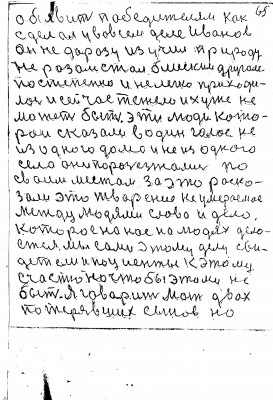 65
объявит победителям как
сделал у вовсем деле Иванов
он не даразу изучил природу
не разомстал близкий другаме
постепенно и нелегко приходи-
лось и сейчас тяжело их уже не
может быть. эти люди кото-
рои сказали водин голос не
из одного дома и не из одного
села они поразъезжали по
своим местам за это раско-
зали это тварение не умераемое
между людями слова и дело.
которое на нас на людях дело-
ется. мы сами этому делу сви-
детели и поциенты к этому
счастю но чтобы этому не
быть. я говарит мать двох
потерявших сынов но